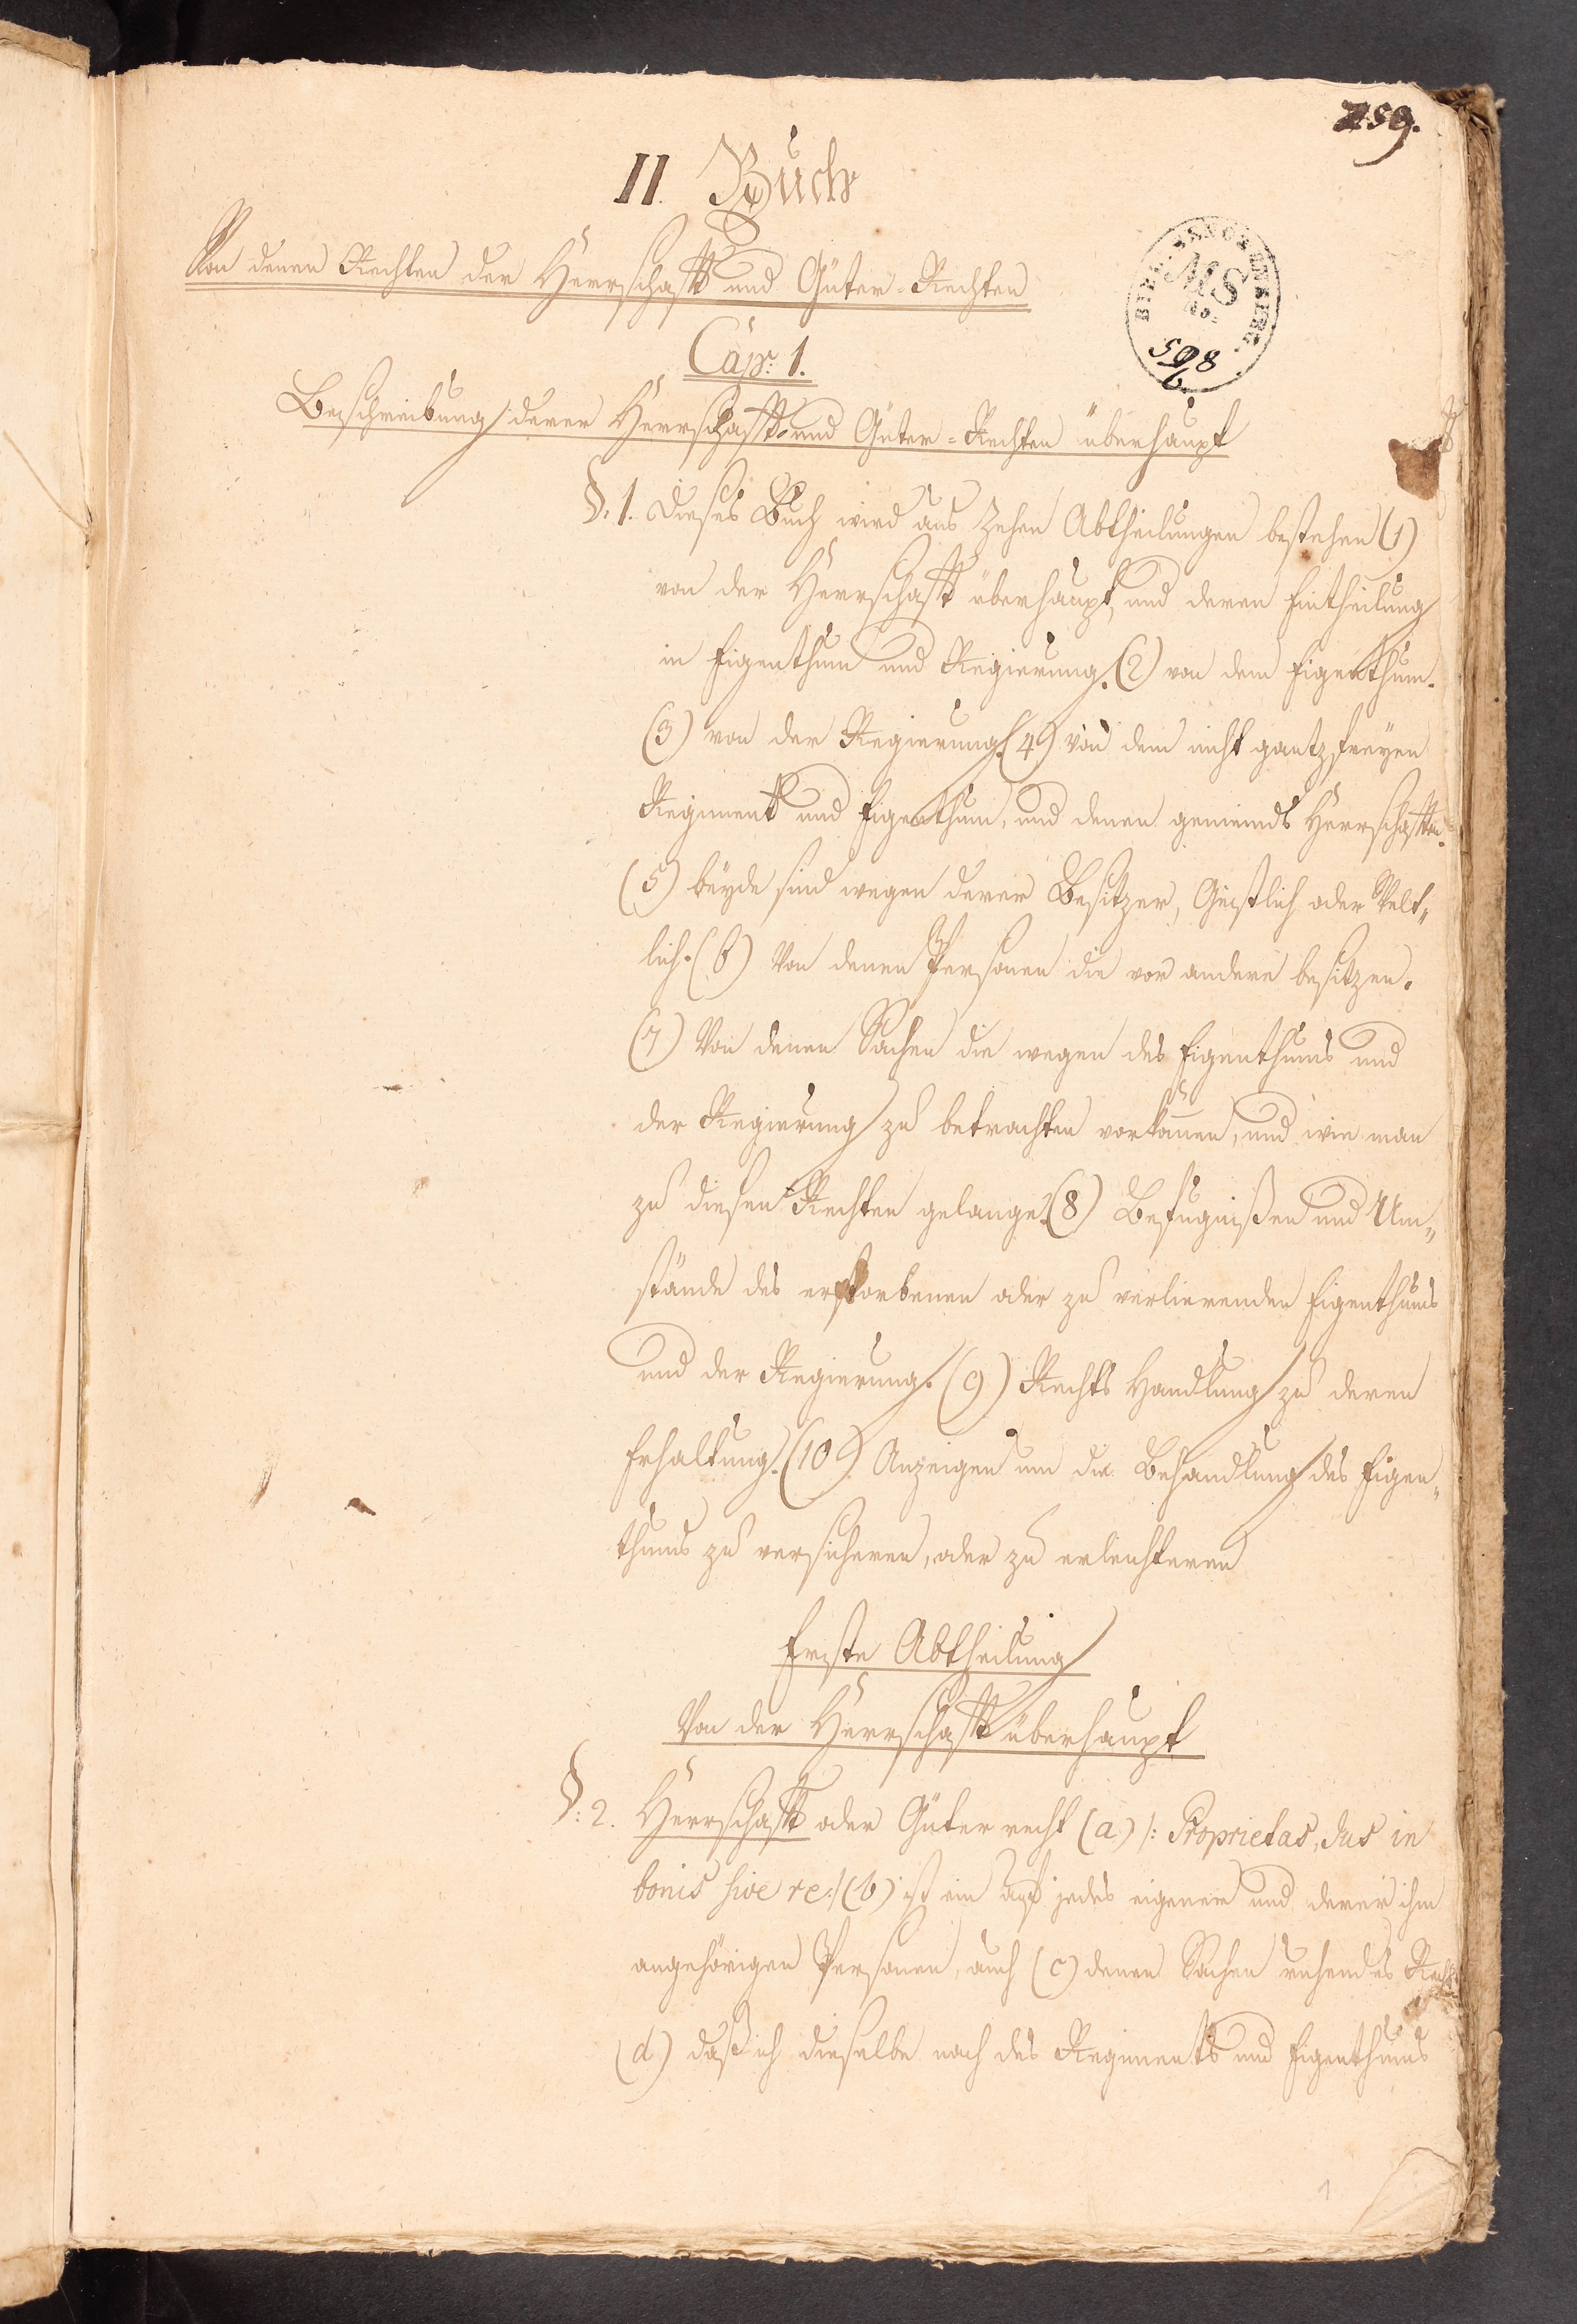 259.
II. Buch
Von denen Rechten der Herrschafft und Güter-Rechten
MS
No.
598
Cap: 1.
Beschreibung derer Herrschafft- und Güter-Rechten überhaupt
§. 1. Dieses Buch wird aus Zehen Abtheilungen bestehen (1)
von der Herrschafft überhaupt, und deren Eintheilung
in Eigenthum und Regierung. (2) von dem Eigenthum.
(3) von der Regierung. (4) von dem nicht gantz freyen
Regiment und Eigenthum, und denen gemeinds Herrschafften.
(5) beyde sind wegen derer Besitzer, Geistlich oder Welt„
lich. (6) Von denen Personen die vor andere besitzen.
(7) Von denen Sachen die wegen des Eigenthums und
der Regierung zu betrachten vorkom̄en, und wie man
zu diesen Rechten gelange. (8) Befugnißen und Um„
stände des erstorbenen oder zu verlierenden Eigenthums
und der Regierung. (9) Rechts Handlung zu deren
Erhaltung. (10) Anzeigen um die Behandlung des Eigen„
thums zu versicheren, oder zu erleichteren
Erste Abtheilung
Von der Herrschafft überhaupt
§: 2. Herrschafft oder Güter recht (a) /: Proprietas, Jus in
bonis sive re :/ (b) ist ein auf jedes eigenen und derer ihm
angehörigen Personen, auch (c) denen Sachen ruhendes Recht
(d) daß ich dieselbe nach des Regiments und Eigenthums
1